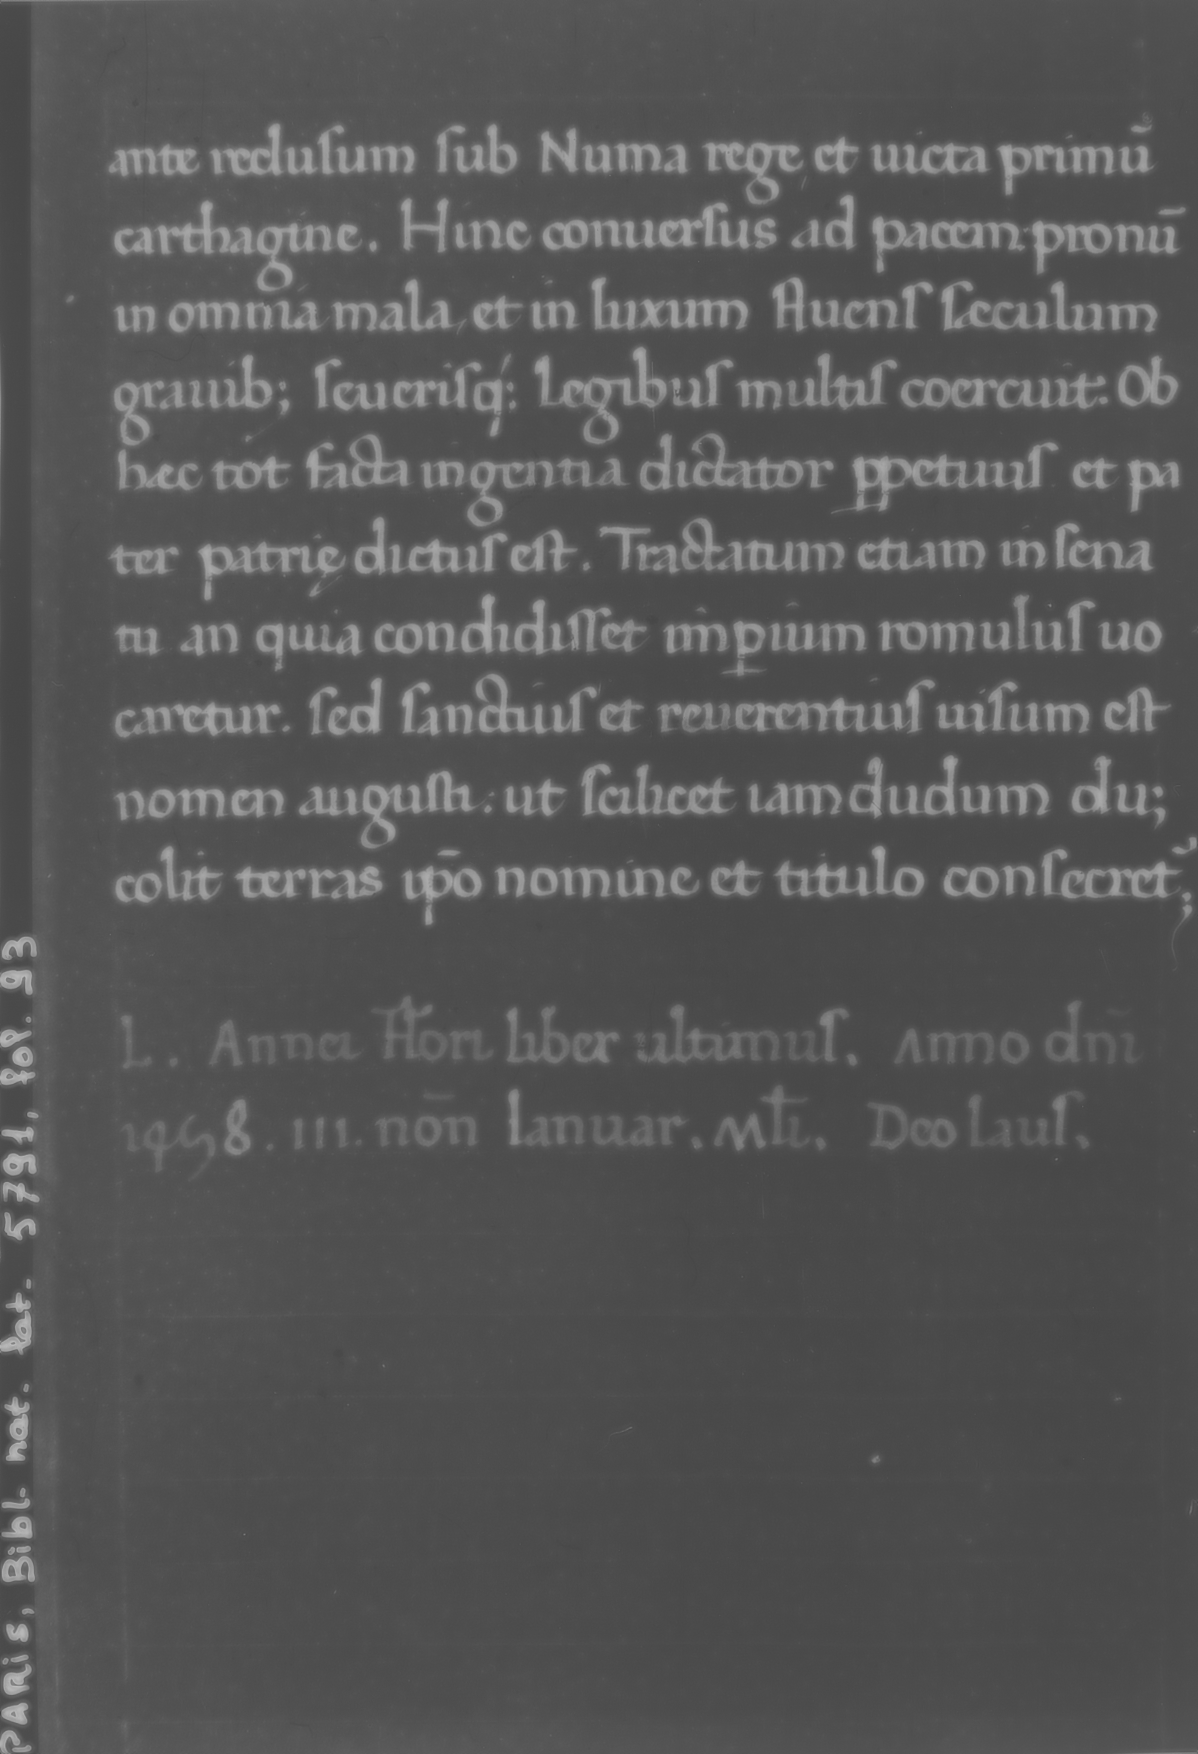 ante recluſum ſub Numa rege, et uicta primū
carthagine. Hinc conuerſus ad pacem: pronū
in omnia mala, et in luxum fluenſ ſæculum
grauib; ſeueriſq: Legibuſ multiſ coercuit: Ob
hæc tot facta ingentia dictator ꝑpetuuſ et pa
ter patrię dictuſ eſt. Tractatum etiam in ſena
tu an quia condidiſſet imꝑium romuluſ uo
caretur. ſed ſanctiuſ et reuerentiuſ uiſum eſt
nomen auguſti: ut ſcilicet iam dudum du;
colit terras ip̄o nomine et titulo conſecret᷑;
L. Annei Flori liber ultimuſ. Anno dn̄i
1458. III. nōn Ianuar. Mt̄i. Deo lauſ.
PARIS, Bibl. nat. lat. 5791, fol. 93